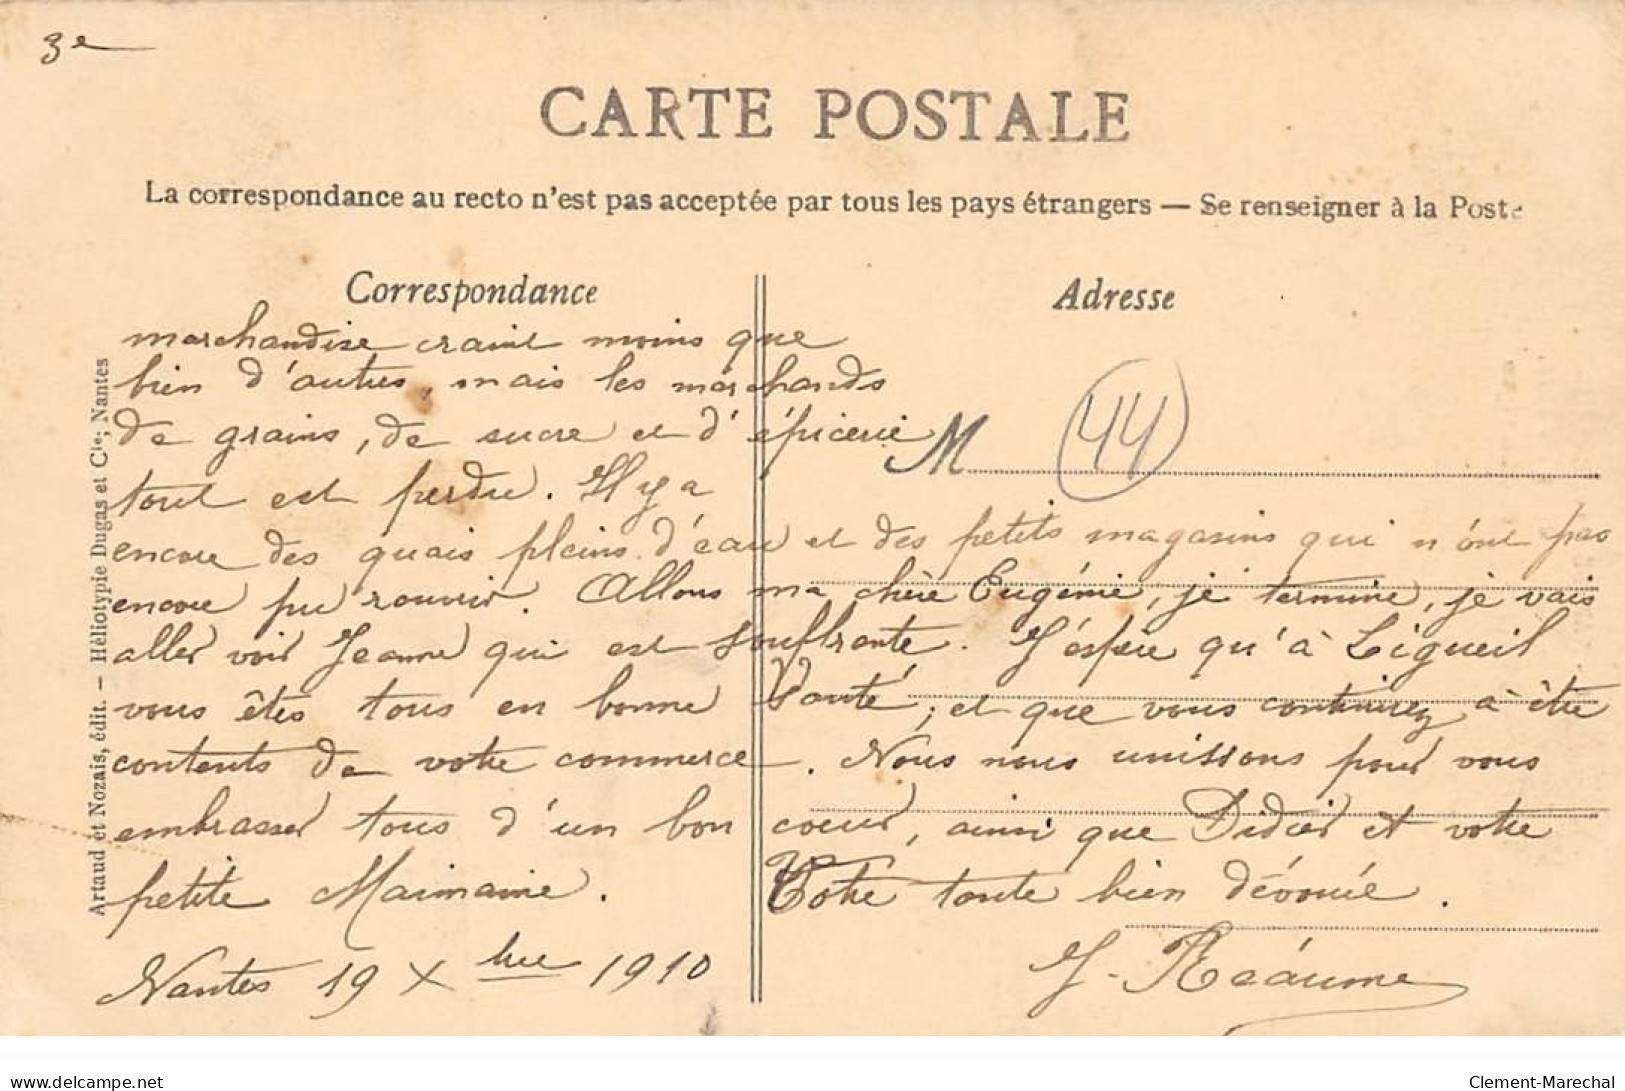 3e
CARTE POSTALE
La correspondance au recto n'est pas acceptée par tous les pays étrangers — Se renseigner à la Poste
Correspondance
Adresse
marchandise craint moins que
bien d'autres, mais les marchands
de grains, de sucre et d'épicerie
M
44
tout est perdu. Il y a
encore des quais pleins d'eau et des petits magasins qui n'ont pas
encore pu rouvrir. Allons ma chère Eugénie, je termine, je vais
aller voir Jeanne qui est souffrante. J'espère qu'à Ligueil
vous êtes tous en bonne santé, et que vous continuez à être
contents de votre commerce. Nous nous unissons pour vous
embrasser tous d'un bon coeur, ainsi que Didier et votre
petite Maimaine. Votre toute bien dévouée.
Nantes 19 Xbre 1910
J. Réaume
Artaud et Nozais, édit. — Héliotypie Dugas et Cie; Nantes
delcampe.net
Clement-Marechal